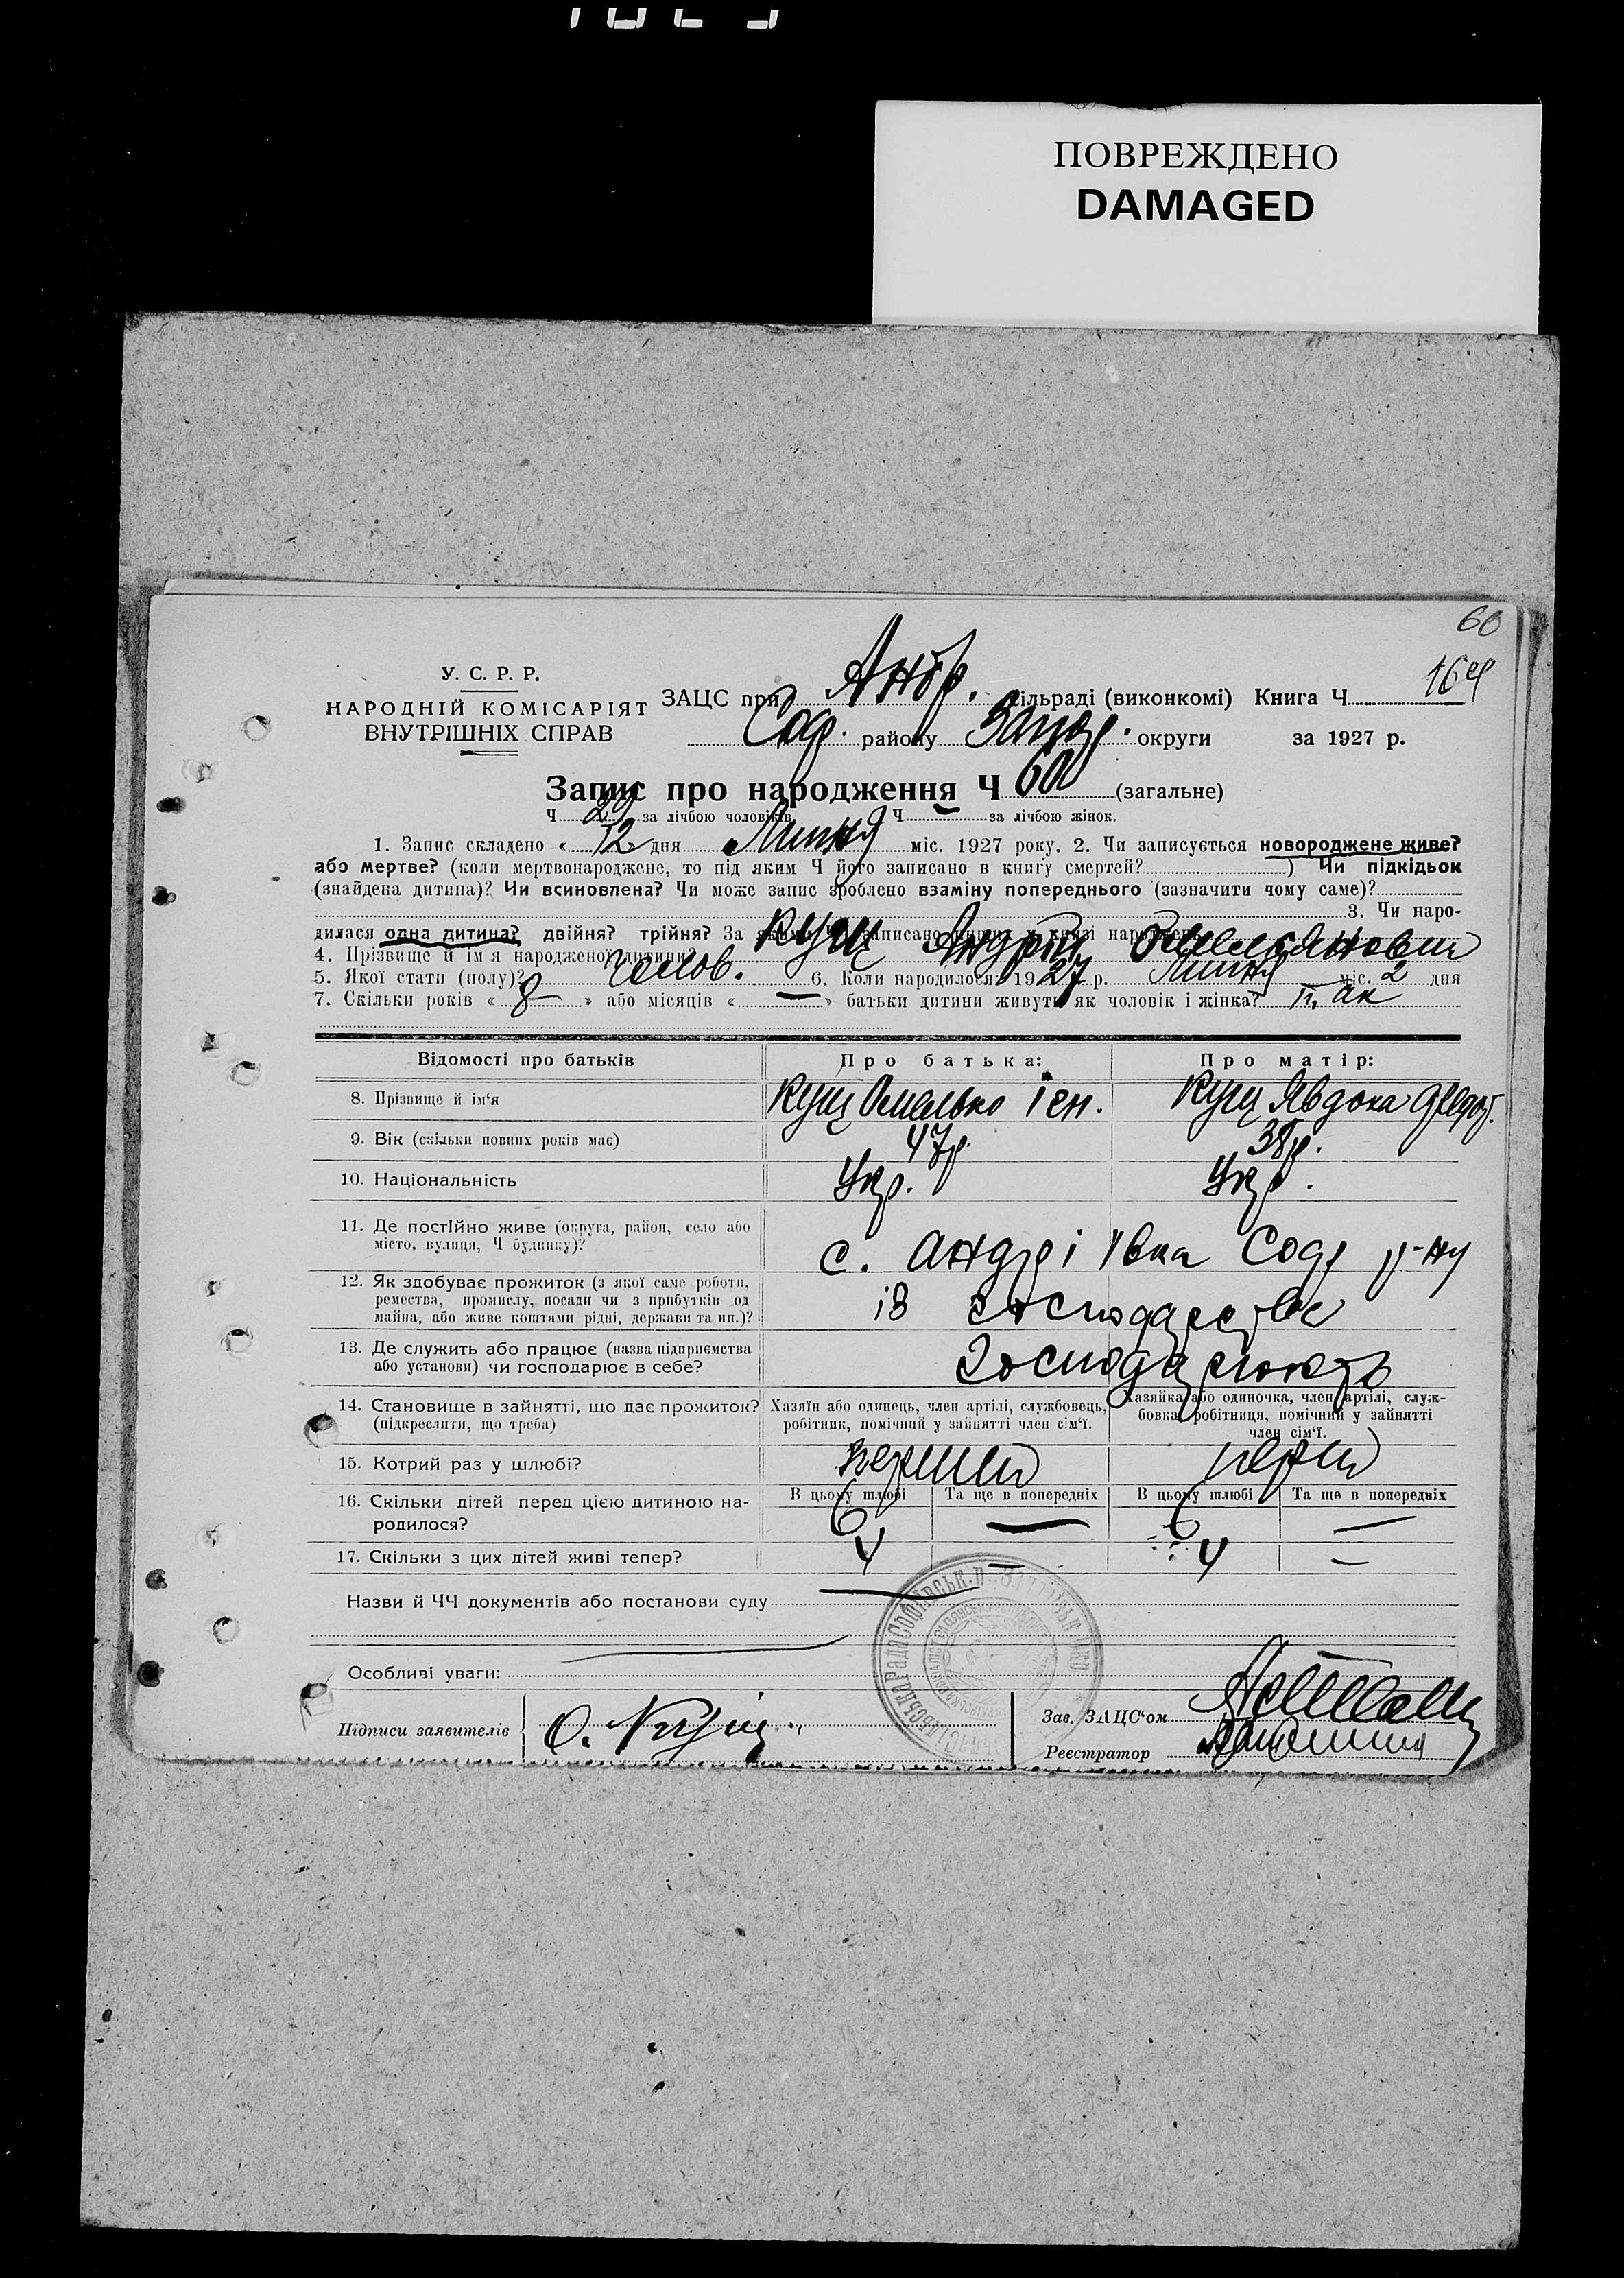 ПОВРЕЖДЕНО
DAMAGED
60
У. С. Р. Р.
НАРОДНІЙ КОМІСАРІЯТ
ВНУТРІШНІХ СПРАВ
ЗАЦС при Андр. сільраді (виконкомі) Книга Ч
Соф. району Запор. округи за 1927 р.
Запис про народження Ч 60 (загальне)
Ч 29 за лічбою чоловіків Ч — за лічбою жінок.
1. Запис складено « 12 » дня Липня міс. 1927 року. 2. Чи записується новороджене живе?
або мертве? (коли мертвонароджене, то під яким Ч його записано в книгу смертей? ) Чи підкідьок
(знайдена дитина)? Чи всиновлена? Чи може запис зроблено взаміну попереднього (зазначити чому саме)?
3. Чи наро-
дилася одна дитина? двійня? трійня? За якими ЧЧ записано в книзі народжень
4. Прізвище й ім'я народженої дитини? Кущ Андрій Омельянович
5. Якої стати (полу)? Чолов. 6. Коли народилося? 1927 р. Липня міс. 2 дня
7. Скільки років « 8 » або місяців « — » батьки дитини живуть як чоловік і жінка? так
Відомості про батьків Про батька: Про матір:
8. Прізвище й ім'я Кущ Омелько Кущ Явдоха
9. Вік (скільки повних років має) 47р. 38р.
10. Національність Укр. Укр.
11. Де постійно живе (округа, район, село або
місто, вулиця, Ч будинку)? с. Андріївка Соф р-ну
12. Як здобуває прожиток (з якої саме роботи,
ремества, промислу, посади чи з прибутків од
майна, або живе коштами рідні, держави та ин.)? із господарства
13. Де служить або працює (назва підприємства
або установи) чи господарює в себе? Господарюють
14. Становище в зайнятті, що дає прожиток?
(підкреслити, що треба)
Хазяїн або одинець, член артілі, службовець,
робітник, помічний у зайнятті член сім'ї.
Хазяйка або одиночка, член артілі, служ-
бовка, робітниця, помічний у зайнятті
член сім'ї.
15. Котрий раз у шлюбі? перший перший
В цьому шлюбі Та ще в попередніх В цьому шлюбі Та ще в попередніх
16. Скільки дітей перед цією дитиною на-
родилося? 6 — 6 —
17. Скільки з цих дітей живі тепер? 4 — 4 —
Назви й ЧЧ документів або постанови суду —
Особливі уваги:
Підписи заявителів О. Кущ
Зав. ЗАЦС'ом
Реєстратор